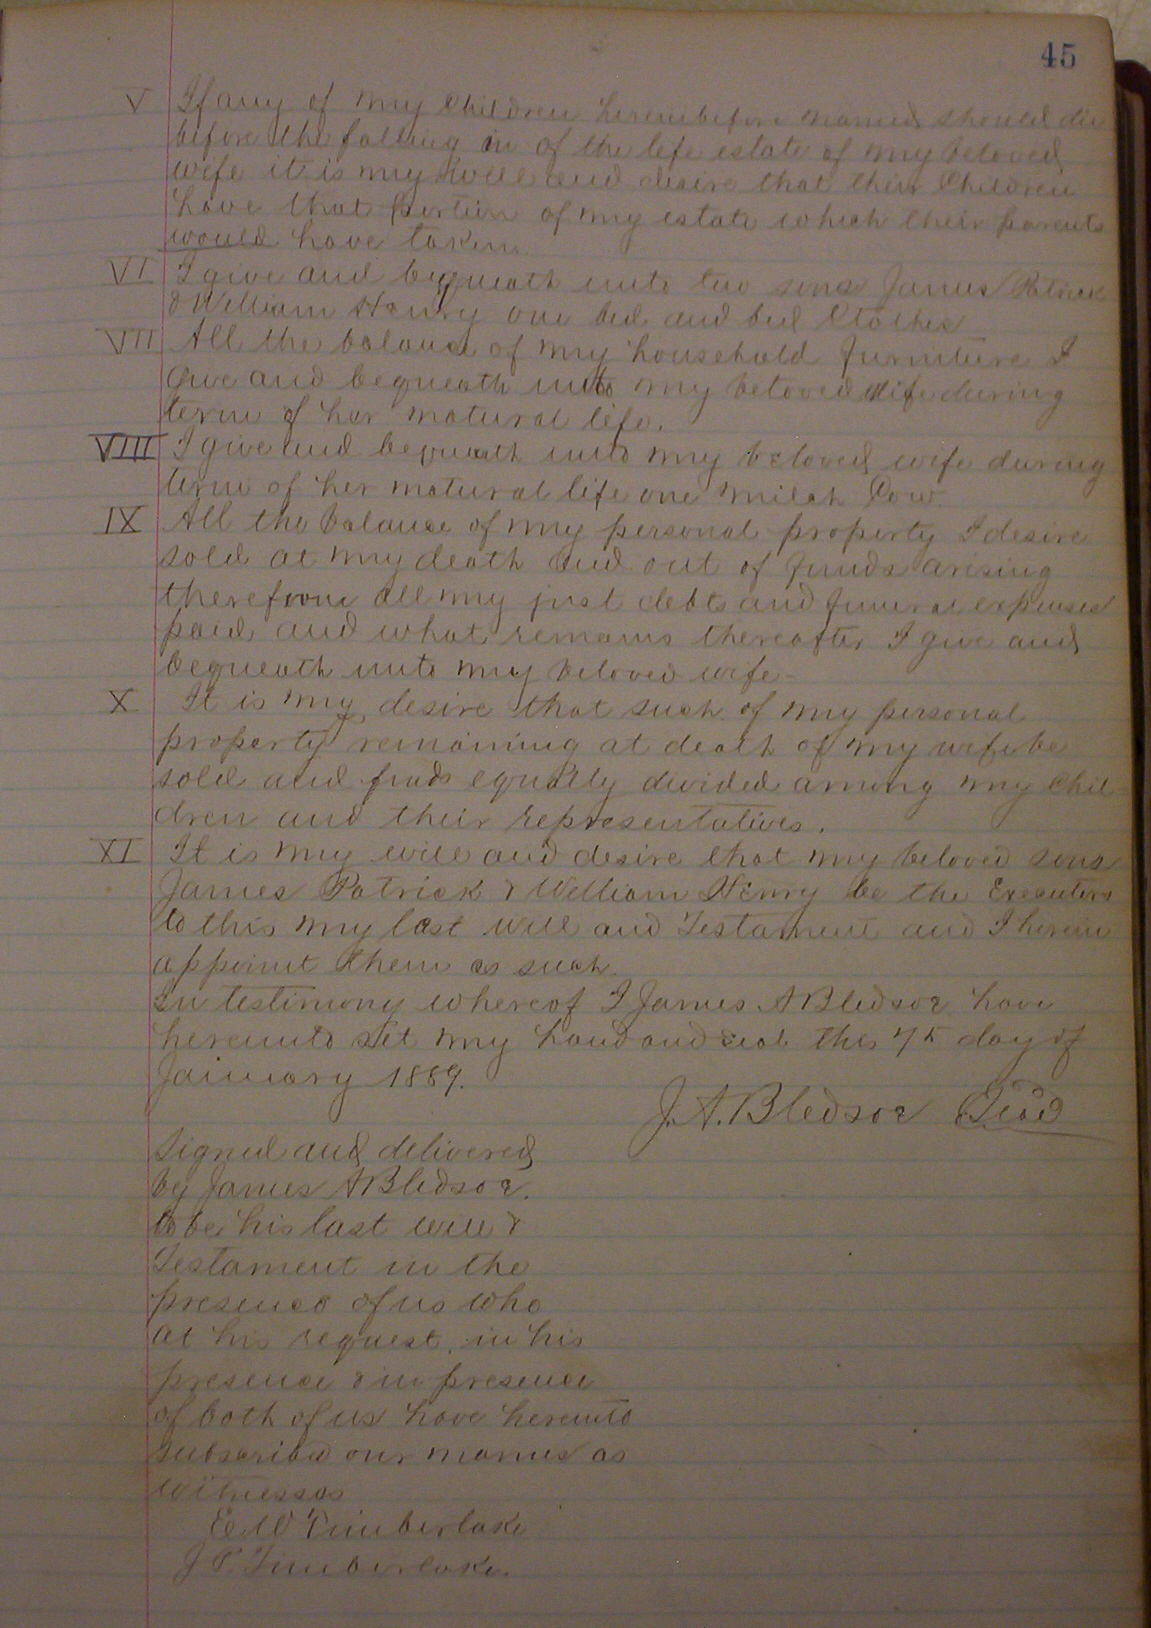 45
V If any of my Children hereinbefore named should die
before the falling in of the life estate of my beloved
wife it is my will and desire that their Children
have that portion of my estate which their parents
would have taken.
VI I give and bequeath unto two sons James Patrick
& William Henry one bed and bed Clothes
VII All the balance of my household furniture I
give and bequeath unto my beloved wife during
term of her natural life.
VIII I give and bequeath unto my beloved wife during
term of her natural life one milch Cow
IX All the balance of my personal property I desire
sold at my death and out of funds arising
therefrom all my just debts and funeral expenses
paid and what remains thereafter I give and
bequeath unto my beloved wife-
X It is my desire that such of my personal
property remaining at death of my wife be
sold and funds equally divided among my Chil-
dren and their representatives.
XI It is my will and desire that my beloved sons
James Patrick & William Henry be the Executors
to this my last will and Testament and I herein
appoint them as such.
In testimony whereof I James A Bledsoe have
hereunto set my hand and seal this 7th day of
January 1889.
J. A. Bledsoe Seal
Signed and delivered
by James A Bledsoe.
to be his last will &
Testament in the
presence of us who
at his request, in his
presence & in presence
of both of us have hereunto
subscribed our names as
witnesses
E W Timberlake
J P. Timberlake.